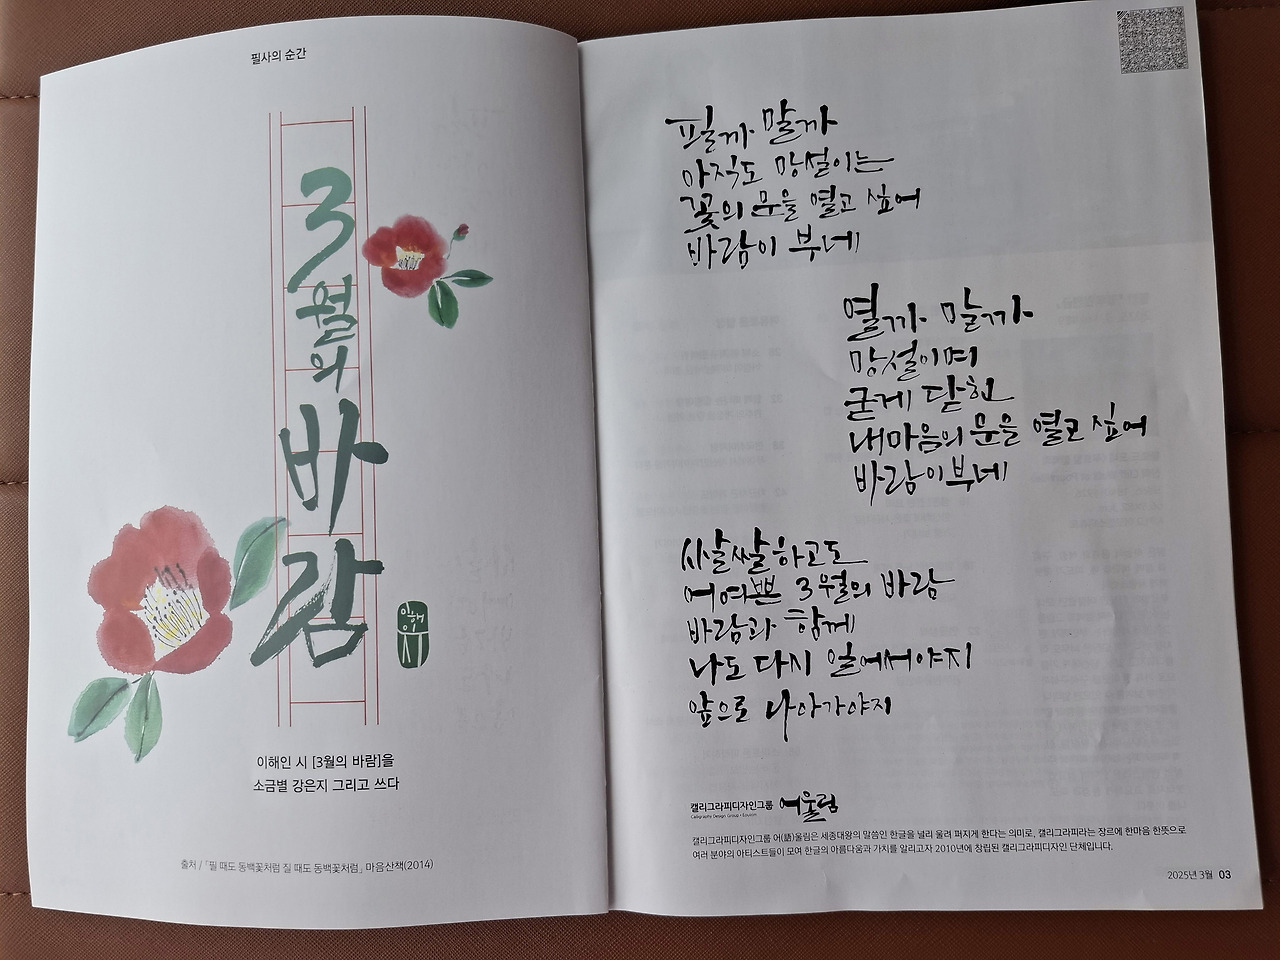 필사의 순간
3월의 바람
이해인 시
이해인 시 [3월의 바람]을
소금별 강은지 그리고 쓰다
출처 / 「필 때도 동백꽃처럼 질 때도 동백꽃처럼」 마음산책(2014)
필까 말까
아직도 망설이는
꽃의 문을 열고 싶어
바람이 부네
열까 말까
망설이며
굳게 닫힌
내마음의 문을 열고 싶어
바람이 부네
쌀쌀하고도
어여쁜 3월의 바람
바람과 함께
나도 다시 일어서야지
앞으로 나아가야지
캘리그라피디자인그룹 어울림
Calligraphy Design Group · Eoullim
캘리그라피디자인그룹 어(語)울림은 세종대왕의 말씀인 한글을 널리 울려 퍼지게 한다는 의미로, 캘리그라피라는 장르에 한마음 한뜻으로
여러 분야의 아티스트들이 모여 한글의 아름다움과 가치를 알리고자 2010년에 창립된 캘리그라피디자인 단체입니다.
2025년 3월 03